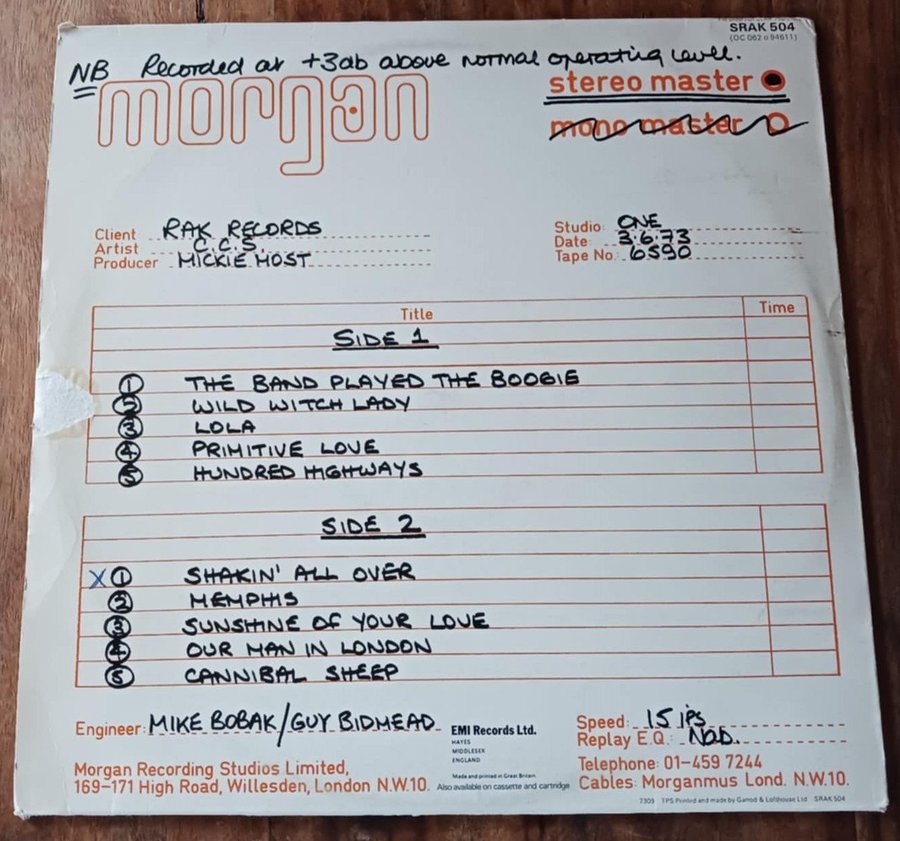 SRAK 504
(OC 062 o 94611)
NB Recorded at +3db above normal operating level.
morgan
stereo master
mono master
Client RAK RECORDS
Artist C.C.S.
Producer MICKIE MOST
Studio: ONE
Date: 3.6.73
Tape No.: 6590
Title Time
SIDE 1
1 THE BAND PLAYED THE BOOGIE
2 WILD WITCH LADY
3 LOLA
4 PRIMITIVE LOVE
5 HUNDRED HIGHWAYS
SIDE 2
X 1 SHAKIN' ALL OVER
2 MEMPHIS
3 SUNSHINE OF YOUR LOVE
4 OUR MAN IN LONDON
5 CANNIBAL SHEEP
Engineer: MIKE BOBAK/GUY BIDMEAD
EMI Records Ltd.
HAYES
MIDDLESEX
ENGLAND
Made and printed in Great Britain
Also available on cassette and cartridge
Speed: 15 IPS
Replay E.Q.: NAB.
Morgan Recording Studios Limited,
169-171 High Road, Willesden, London N.W.10.
Telephone: 01-459 7244
Cables: Morganmus Lond. N.W.10.
7309 TPS Printed and made by Garrod & Lofthouse Ltd SRAK 504